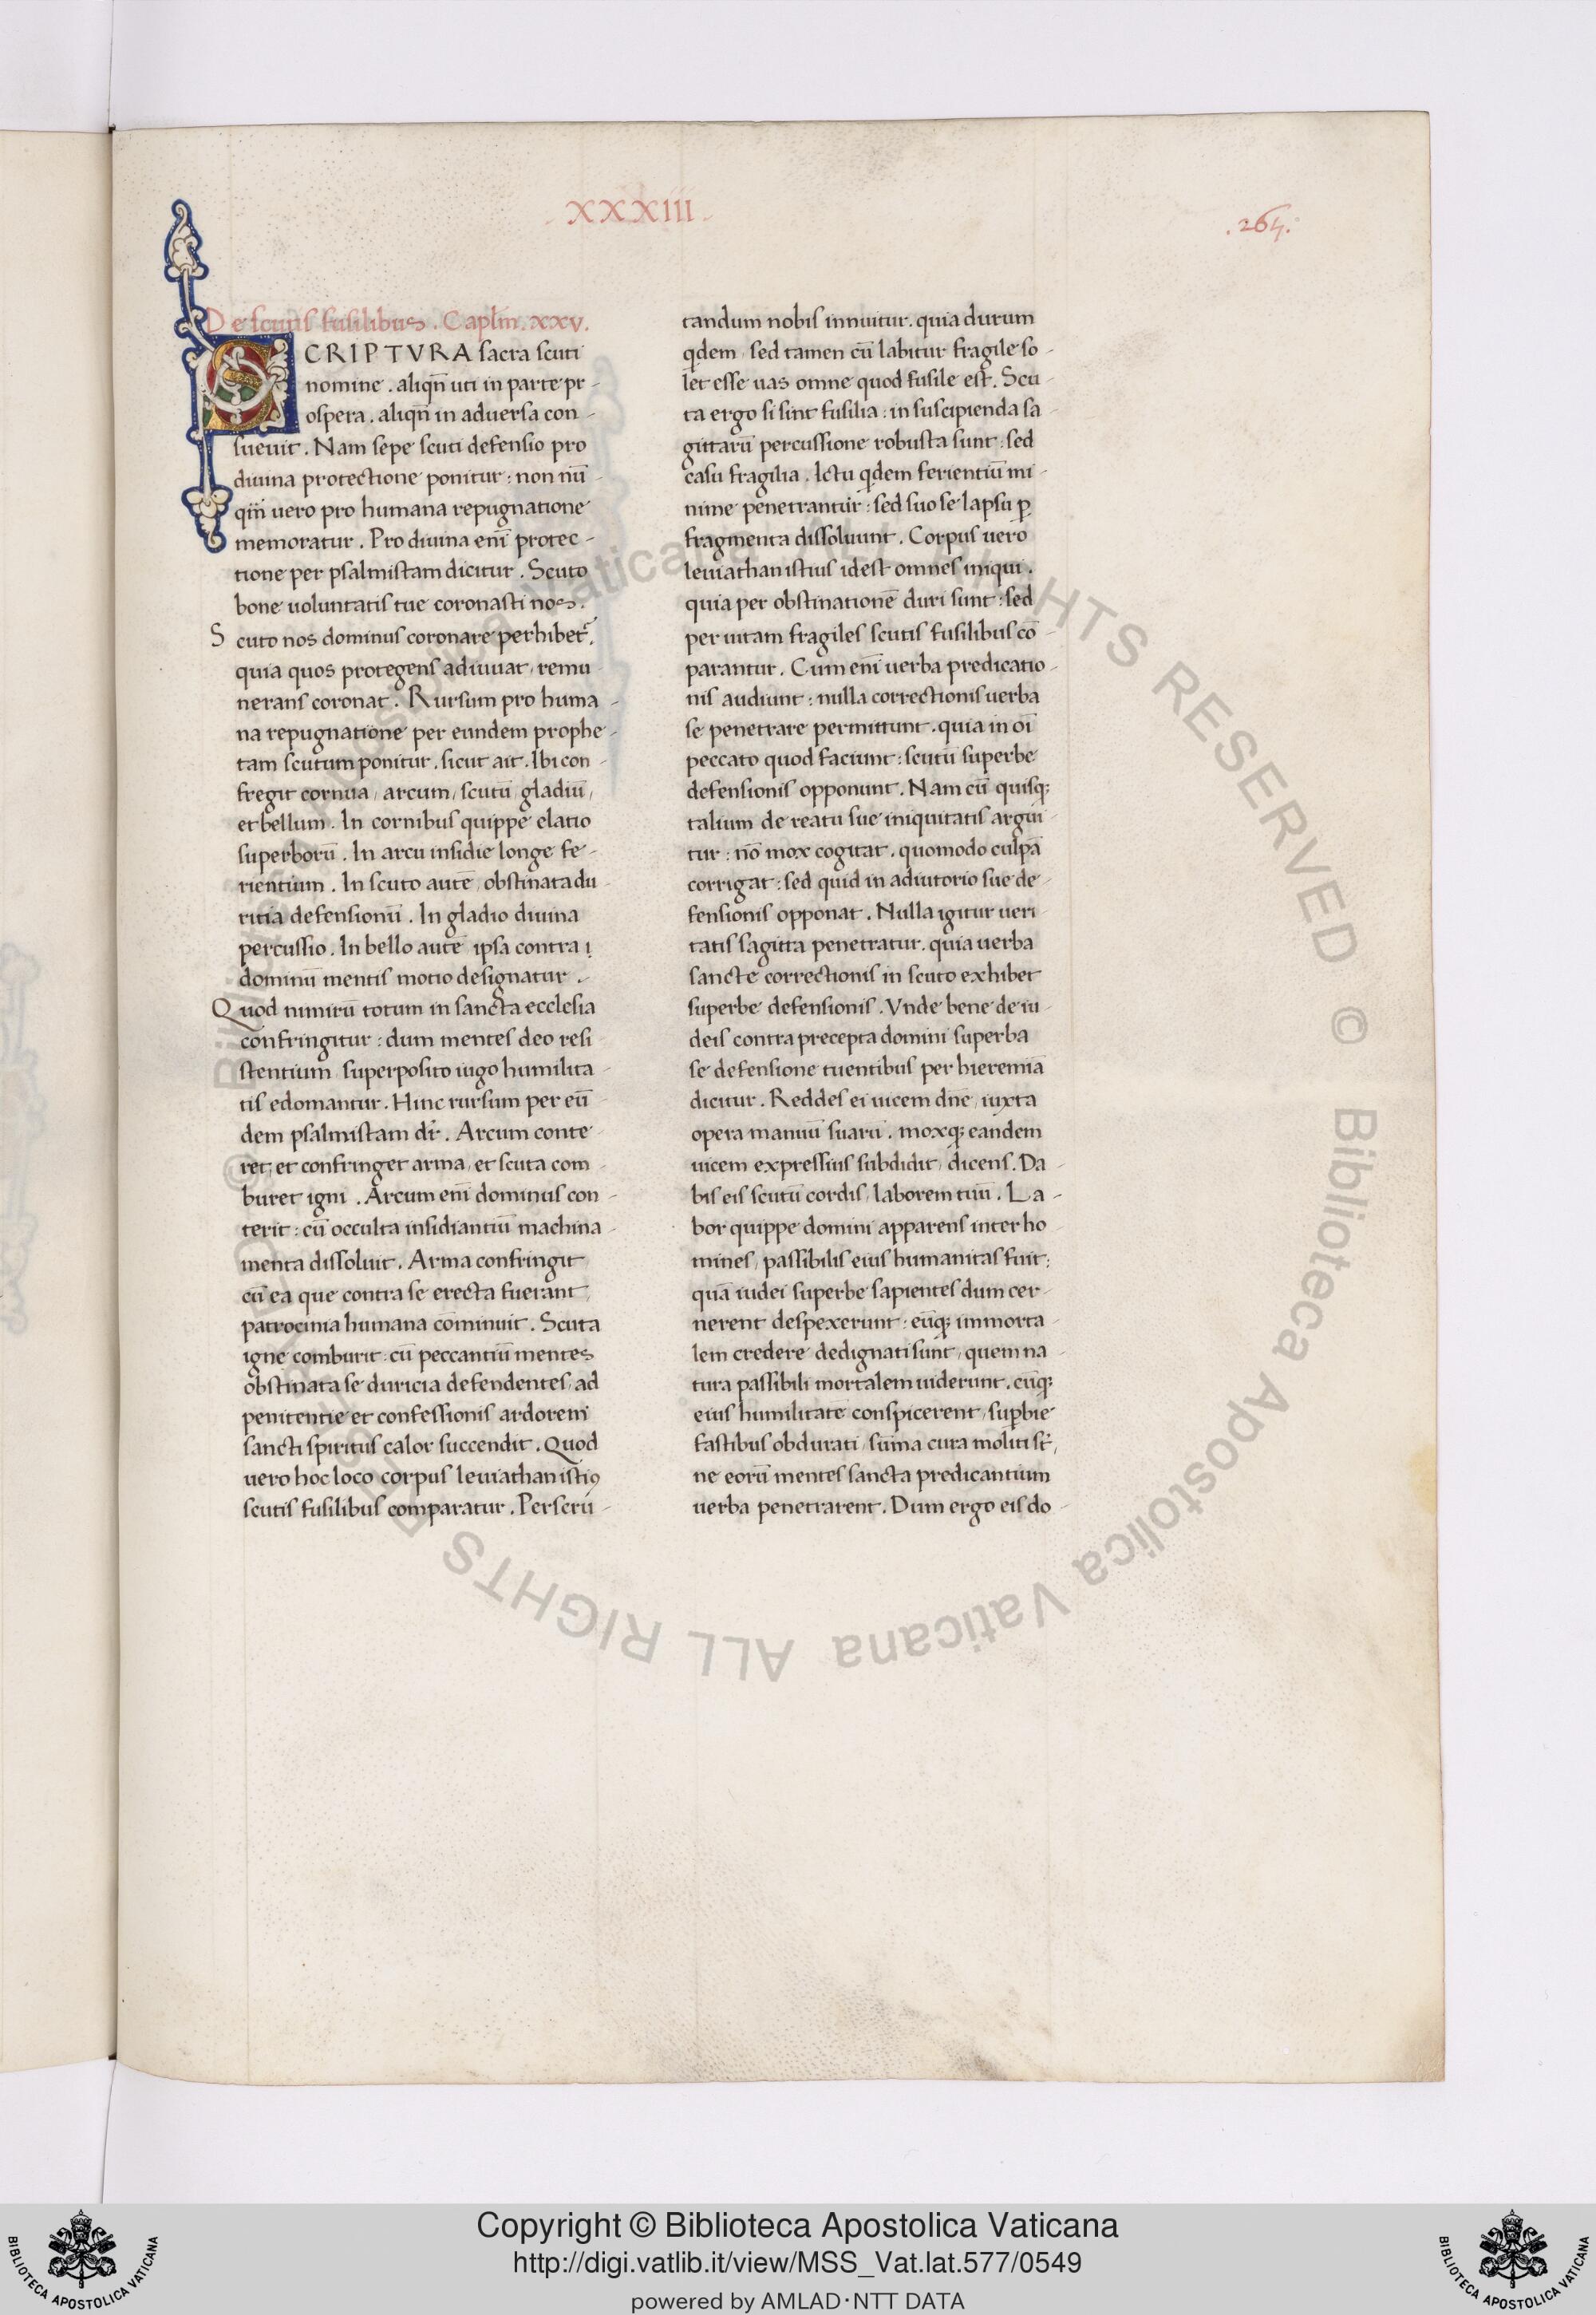 XXXIII
.264.
De scutis fusilibus . Caplm̄ . xxv.
SCRIPTVRA sacra scuti
nomine . aliqn̄ uti in parte pr-
ospera . aliqn̄ in aduersa con-
sueuit . Nam sepe scuti defensio pro
diuina protectione ponitur : non nū-
qm̄ uero pro humana repugnatione
memoratur . Pro diuina enī protec-
tione per psalmistam dicitur . Scuto
bone uoluntatis tue coronasti nos .
Scuto nos dominus coronare perhibet̄.
quia quos protegens adiuuat, remu-
nerans coronat . Rursum pro huma-
na repugnatione per eundem prophe-
tam scutum ponitur . sicut ait . Ibi con-
fregit cornua, arcum, scutū, gladiū,
et bellum . In cornibus quippe elatio
superborū . In arcu insidie longe fe-
rientium . In scuto autē, obstinata du-
ritia defensionū . In gladio diuina
percussio . In bello autē ipsa contra
dominū mentis motio designatur .
Quod nimirū totum in sancta ecclesia
confringitur : dum mentes deo resi
stentium superposito iugo humilita-
tis edomantur . Hinc rursum per eū-
dem psalmistam dr̄ . Arcum conte-
ret, et confringet arma, et scuta com-
buret igni . Arcum enī dominus con-
terit : cū occulta insidiantiū machina-
menta dissoluit . Arma confringit
cū ea que contra se erecta fuerant,
patrocinia humana cōminuit . Scuta
igne comburit : cū peccantiū mentes
obstinata se duricia defendentes, ad
penitentie et confessionis ardorem
sancti spiritus calor succendit . Quod
uero hoc loco corpus leuiathan istiꝯ
scutis fusilibus comparatur . Perscrū-
tandum nobis innuitur . quia durum
qdem, sed tamen cū labitur fragile so-
let esse uas omne quod fusile est . Scu-
ta ergo si sint fusilia : in suscipienda sa
gittarū percussione robusta sunt : sed
casu fragilia . Ictu qdem ferientiū mi-
nime penetrantur : sed suo se lapsu ꝑ
fragmenta dissoluunt . Corpus uero
leuiathan istius idest omnes iniqui .
quia per obstinationē duri sunt : sed
per uitam fragiles scutis fusilibus cō-
parantur . Cum enī uerba predicatio-
nis audiunt : nulla correctionis uerba
se penetrare permittunt . quia in oī
peccato quod faciunt : scutū superbe
defensionis opponunt . Nam cū quisq;
talium de reatu sue iniquitatis argui-
tur : nō mox cogitat . quomodo culpā
corrigat : sed quid in adiutorio sue de-
fensionis opponat . Nulla igitur ueri-
tatis sagitta penetratur . quia uerba
sancte correctionis in scuto exhibet
superbe defensionis . Vnde bene de iu-
deis contra precepta domini superba
se defensione tuentibus per hieremiā
dicitur . Reddes ei uicem dn̄e, iuxta
opera manuū suarū . moxq; eandem
uicem expressius subdidit, dicens . Da-
bis eis scutū cordis, laborem tuū . La-
bor quippe domini apparens inter ho
mines, passibilis eius humanitas fuit :
quā iudei superbe sapientes dum cer-
nerent despexerunt : eūq; immorta-
lem credere dedignati sunt, quem na-
tura passibili mortalem uiderunt . cūq;
eius humilitatē conspicerent, suꝑbie
fastibus obdurati, sūma cura moliti st̄,
ne eorū mentes sancta predicantium
uerba penetrarent . Dum ergo eis do-
© Biblioteca Apostolica Vaticana ALL RIGHTS RESERVED © Biblioteca Apostolica Vaticana ALL RIGHTS RESERVED
Copyright © Biblioteca Apostolica Vaticana
http://digi.vatlib.it/view/MSS_Vat.lat.577/0549
powered by AMLAD·NTT DATA
BIBLIOTECA APOSTOLICA VATICANA
BIBLIOTECA APOSTOLICA VATICANA